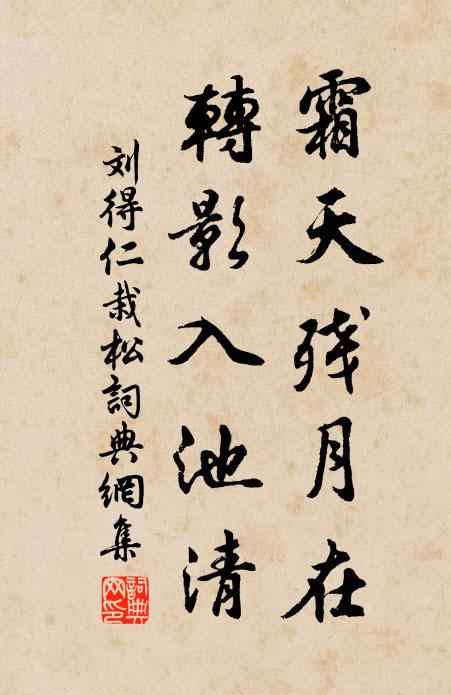 霜天残月在
轉影入池清
刘得仁栽松詞典網集
詞典
网印